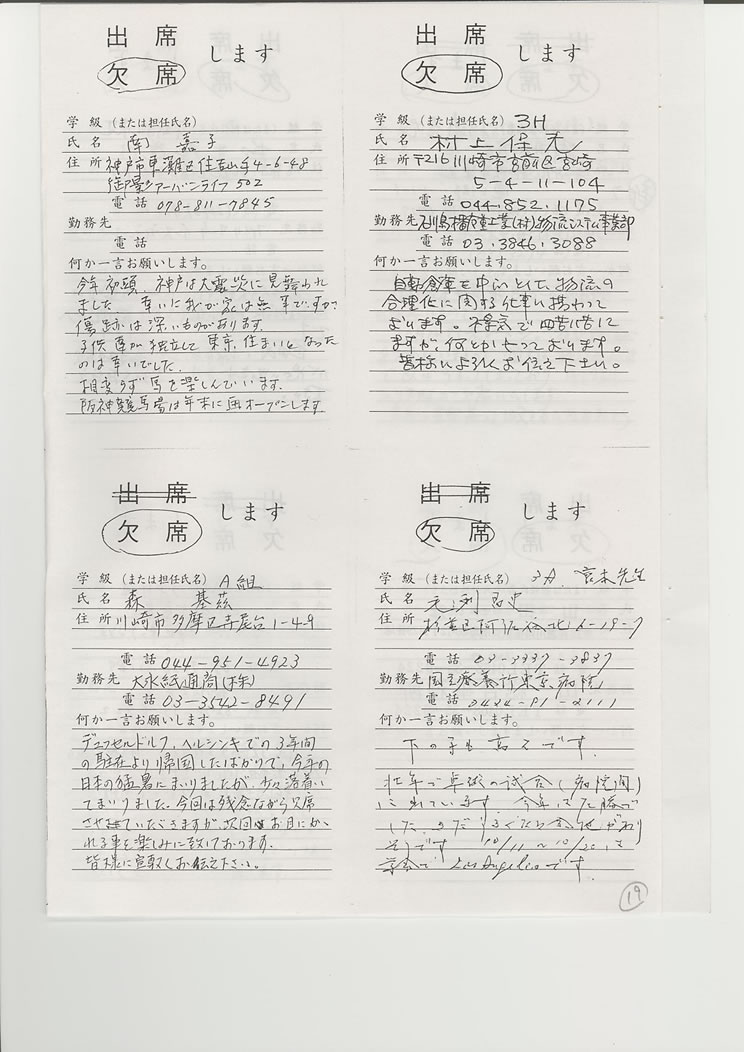 出席
欠席
します
学級（または担任氏名）
氏名 南 嘉子
住所 神戸市東灘区住吉山手4-6-48
御影アーバンライフ 502
電話 078-811-7845
勤務先
電話
何か一言お願いします。
今年初頭、神戸は大震災に見舞われ
ました 幸いに我が家は無事ですが、
傷跡は深いものがあります.
子供達が独立して東京住まいとなった
のは幸いでした.
相変らず馬を楽しんでいます.
阪神競馬場は年末に再オープンします.
出席
欠席
します
学級（または担任氏名） 3H
氏名 村上保夫
住所 〒216 川崎市宮前区宮崎
5-4-11-104
電話 044.852.1175
勤務先 石川島播磨重工業(株)物流システム事業部
電話 03.3846.3088
何か一言お願いします。
自動倉庫を中心として、物流の
合理化に関する仕事に携わって
おります。不景気で四苦八苦して
ますが、何とかやっております。
皆様によろしくお伝え下さい。
出席
欠席
します
学級（または担任氏名） A組
氏名 森 基茲
住所 川崎市多摩区寺尾台1-4-9
電話 044-951-4923
勤務先 大永紙通商(株)
電話 03-3542-8491
何か一言お願いします。
デュッセルドルフ、ヘルシンキでの3年間
の駐在より帰国したばかりで、今年の
日本の猛暑にまいりましたが、少々落着い
てまいりました. 今回は残念ながら欠席
させていただきますが、次回はお目にかか
れる事を楽しみに致しております.
皆様に宜敷くお伝え下さい。
出席
欠席
します
学級（または担任氏名） 3A. 宮本先生
氏名 毛利
住所 杉並区阿佐谷北6-19-7
電話 03-3337-3837
勤務先 国立療養所東京病院
電話 0424-91-2111
何か一言お願いします。
下の子も高2です.
卓球の試合(病院間)
に出ています. 今年は
した.
そうです 10/11〜10/20は
学会で Los Angelesです.
19